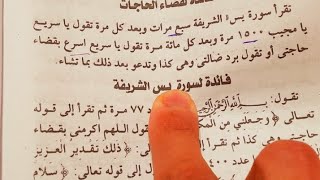 لقضاء الحاجات
تقرأ سورة يس الشريفة سبع مرات وبعد كل مرة تقول يا سريع
يا مجيب ١٥٠٠ مرة وبعد كل مائة مرة تقول يا سريع اسرع بقضاء
حاجتي أو تقول برد ضالتي وهى كذا وتدعو بعد ذلك بما تشاء.
فائدة لسورة يس الشريفة
تقول: ٧٧ مرة ثم تقرأ إلى قوله
تعالى ﴿ وجعلني من تقول اللهم اكرمني بقضاء
حاجتي وهى كذا ثم تقرأ إلى قوله ﴿ ذلك تقدير العزيز
عدد ٤٠٠ إلى قوله تعالى: ﴿ سلام